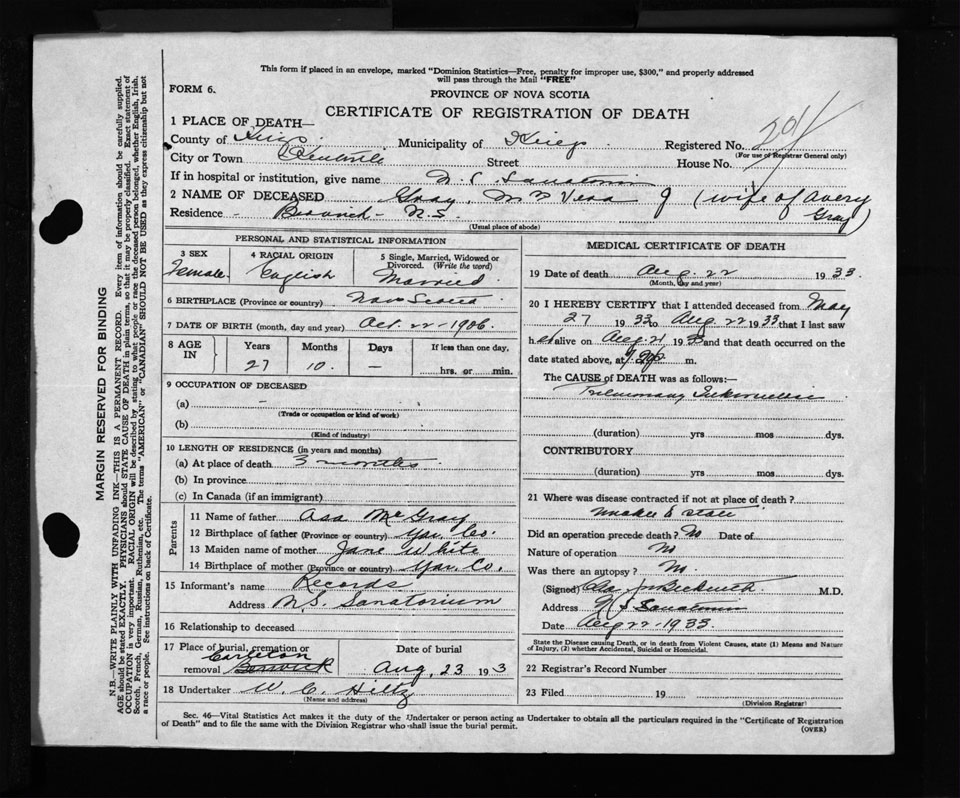 This form if placed in an envelope, marked "Dominion Statistics—Free, penalty for improper use, $300," and properly addressed
will pass through the Mail "FREE"
FORM 6.
PROVINCE OF NOVA SCOTIA
CERTIFICATE OF REGISTRATION OF DEATH
1 PLACE OF DEATH—
County of Kings Municipality of Kings Registered No. 201
(For use of Registrar General only)
City or Town Kentville Street House No.
If in hospital or institution, give name N. S. Sanatorium
2 NAME OF DECEASED Gray, Mrs Vera J (wife of Avery
Gray)
Residence - Berwick - N.S.
(Usual place of abode)
PERSONAL AND STATISTICAL INFORMATION
3 SEX 4 RACIAL ORIGIN 5 Single, Married, Widowed or
Divorced. (Write the word)
Female English Married
6 BIRTHPLACE (Province or country) Nova Scotia
7 DATE OF BIRTH (month, day and year) Oct. 22 - 1906.
8 AGE IN Years Months Days If less than one day,
27 10. — hrs. or min.
9 OCCUPATION OF DECEASED
(a) —
(Trade or occupation or kind of work)
(b)
(Kind of industry)
10 LENGTH OF RESIDENCE (in years and months)
(a) At place of death 3 months
(b) In province
(c) In Canada (if an immigrant)
Parents
11 Name of father Asa McGray
12 Birthplace of father (Province or country) Yar. Co.
13 Maiden name of mother Jane White
14 Birthplace of mother (Province or country) Yar. Co.
15 Informant's name Records
Address N.S. Sanatorium
16 Relationship to deceased
17 Place of burial, cremation or Date of burial
Carleton
removal Berwick Aug, 23 193
18 Undertaker W. C. Hiltz
(Name and address)
MEDICAL CERTIFICATE OF DEATH
19 Date of death Aug. 22 1933.
(Month, day and year)
20 I HEREBY CERTIFY that I attended deceased from May
27 1933 to Aug 22 1933 that I last saw
h er alive on Aug. 21 1933 and that death occurred on the
date stated above, at m.
The CAUSE of DEATH was as follows:—
Pulmonary Tuberculosis
(duration) yrs mos dys.
CONTRIBUTORY
(duration) yrs mos dys.
21 Where was disease contracted if not at place of death?
unable to state
Did an operation precede death? No Date of
Nature of operation No
Was there an autopsy? No
(Signed) Beckwith M.D.
Address N S Sanatorium
Date Aug 22 - 1933.
State the Disease causing Death, or in death from Violent Causes, state (1) Means and Nature
of Injury, (2) whether Accidental, Suicidal or Homicidal.
22 Registrar's Record Number
23 Filed 19
(Division Registrar)
Sec. 46—Vital Statistics Act makes it the duty of the Undertaker or person acting as Undertaker to obtain all the particulars required in the "Certificate of Registration
of Death" and to file the same with the Division Registrar who shall issue the burial permit.
(OVER)
MARGIN RESERVED FOR BINDING
N.B.—WRITE PLAINLY WITH UNFADING INK—THIS IS A PERMANENT RECORD. Every item of information should be carefully supplied.
AGE should be stated EXACTLY. PHYSICIANS should STATE CAUSE OF DEATH in plain terms, so that it may be properly classified. Exact statement of
OCCUPATION is very important. RACIAL ORIGIN will be described by stating to what people or race the deceased person belonged, whether English, Irish,
Scotch, French, German, Russian, Ruthenian, etc. The terms "AMERICAN" or "CANADIAN" SHOULD NOT BE USED as they express citizenship but not
a race or people. See instructions on back of Certificate.